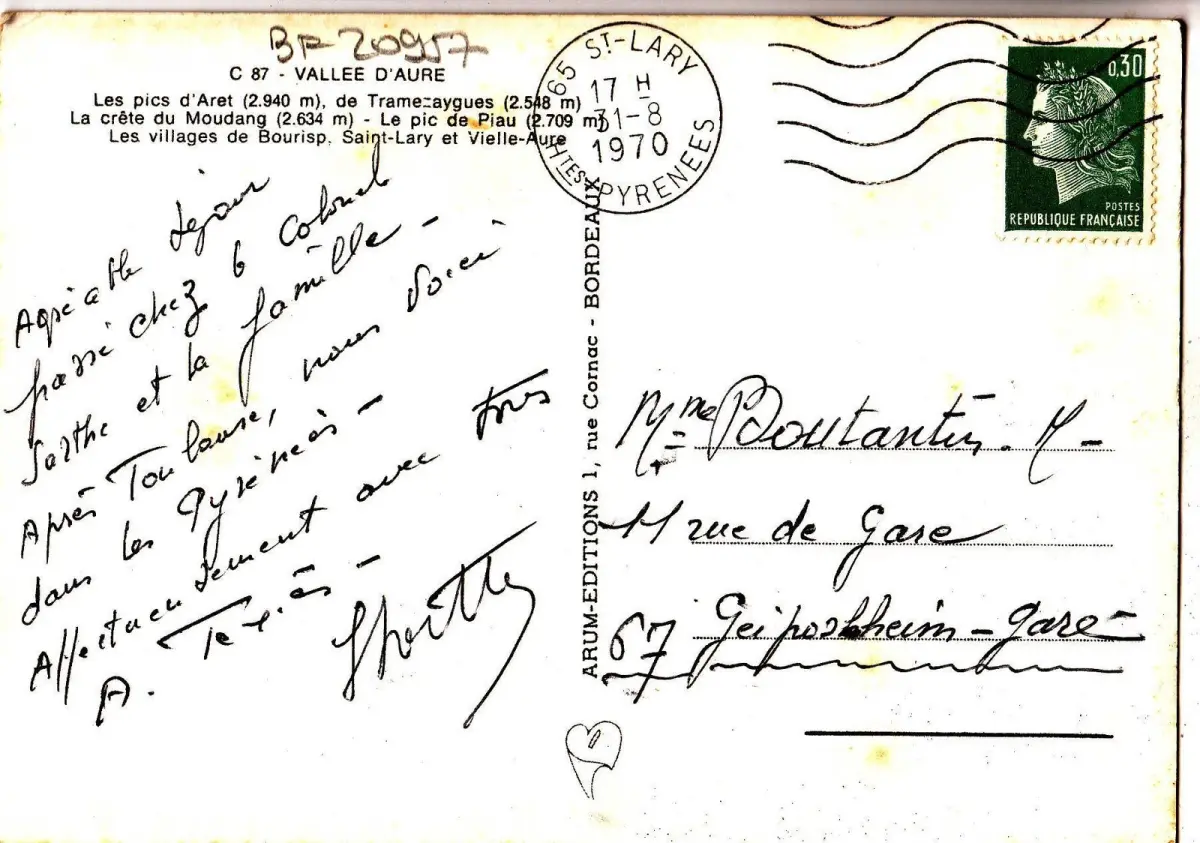 BF 20957
C 87 - VALLEE D'AURE
Les pics d'Aret (2.940 m), de Tramezaygues (2.548 m)
La crête du Moudang (2.634 m) - Le pic de Piau (2.709 m)
Les villages de Bourisp, Saint-Lary et Vielle-Aure
65 ST-LARY
17 H
31-8
1970
HTES PYRENEES
0,30
POSTES
REPUBLIQUE FRANÇAISE
Agréable séjour
passé chez le Colonel
et la famille -
Après Toulouse, nous voici
dans les Pyrénées -
Affectueusement avec tous
A.
ARUM-EDITIONS 1, rue Cornac - BORDEAUX
Mme Boutantin. M -
11 rue de Gare
67 Geipolsheim-gare